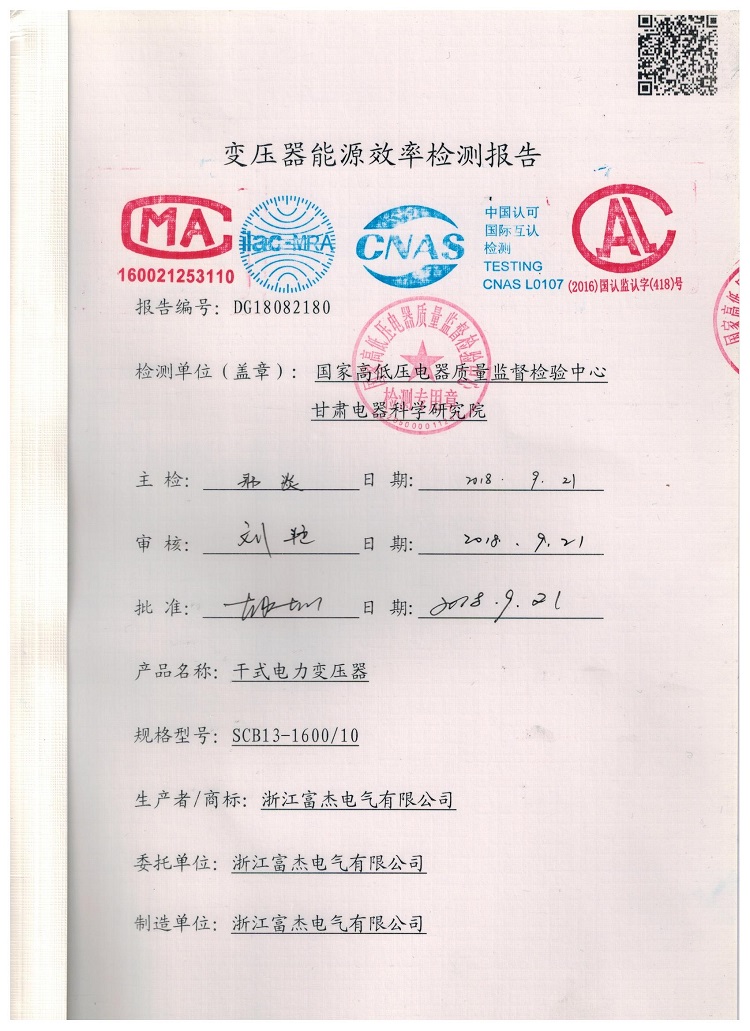 变压器能源效率检测报告
MA
160021253110
ilac-MRA
CNAS
中国认可
国际互认
检测
TESTING
CNAS L0107
CAL
(2016)国认监认字(418)号
报告编号: DG18082180
检测单位(盖章): 国家高低压电器质量监督检验中心
甘肃电器科学研究院
检测专用章
主检: 日期: 2018.9.21
审核: 刘艳 日期: 2018.9.21
批准: 日期: 2018.9.21
产品名称: 干式电力变压器
规格型号: SCB13-1600/10
生产者/商标: 浙江富杰电气有限公司
委托单位: 浙江富杰电气有限公司
制造单位: 浙江富杰电气有限公司